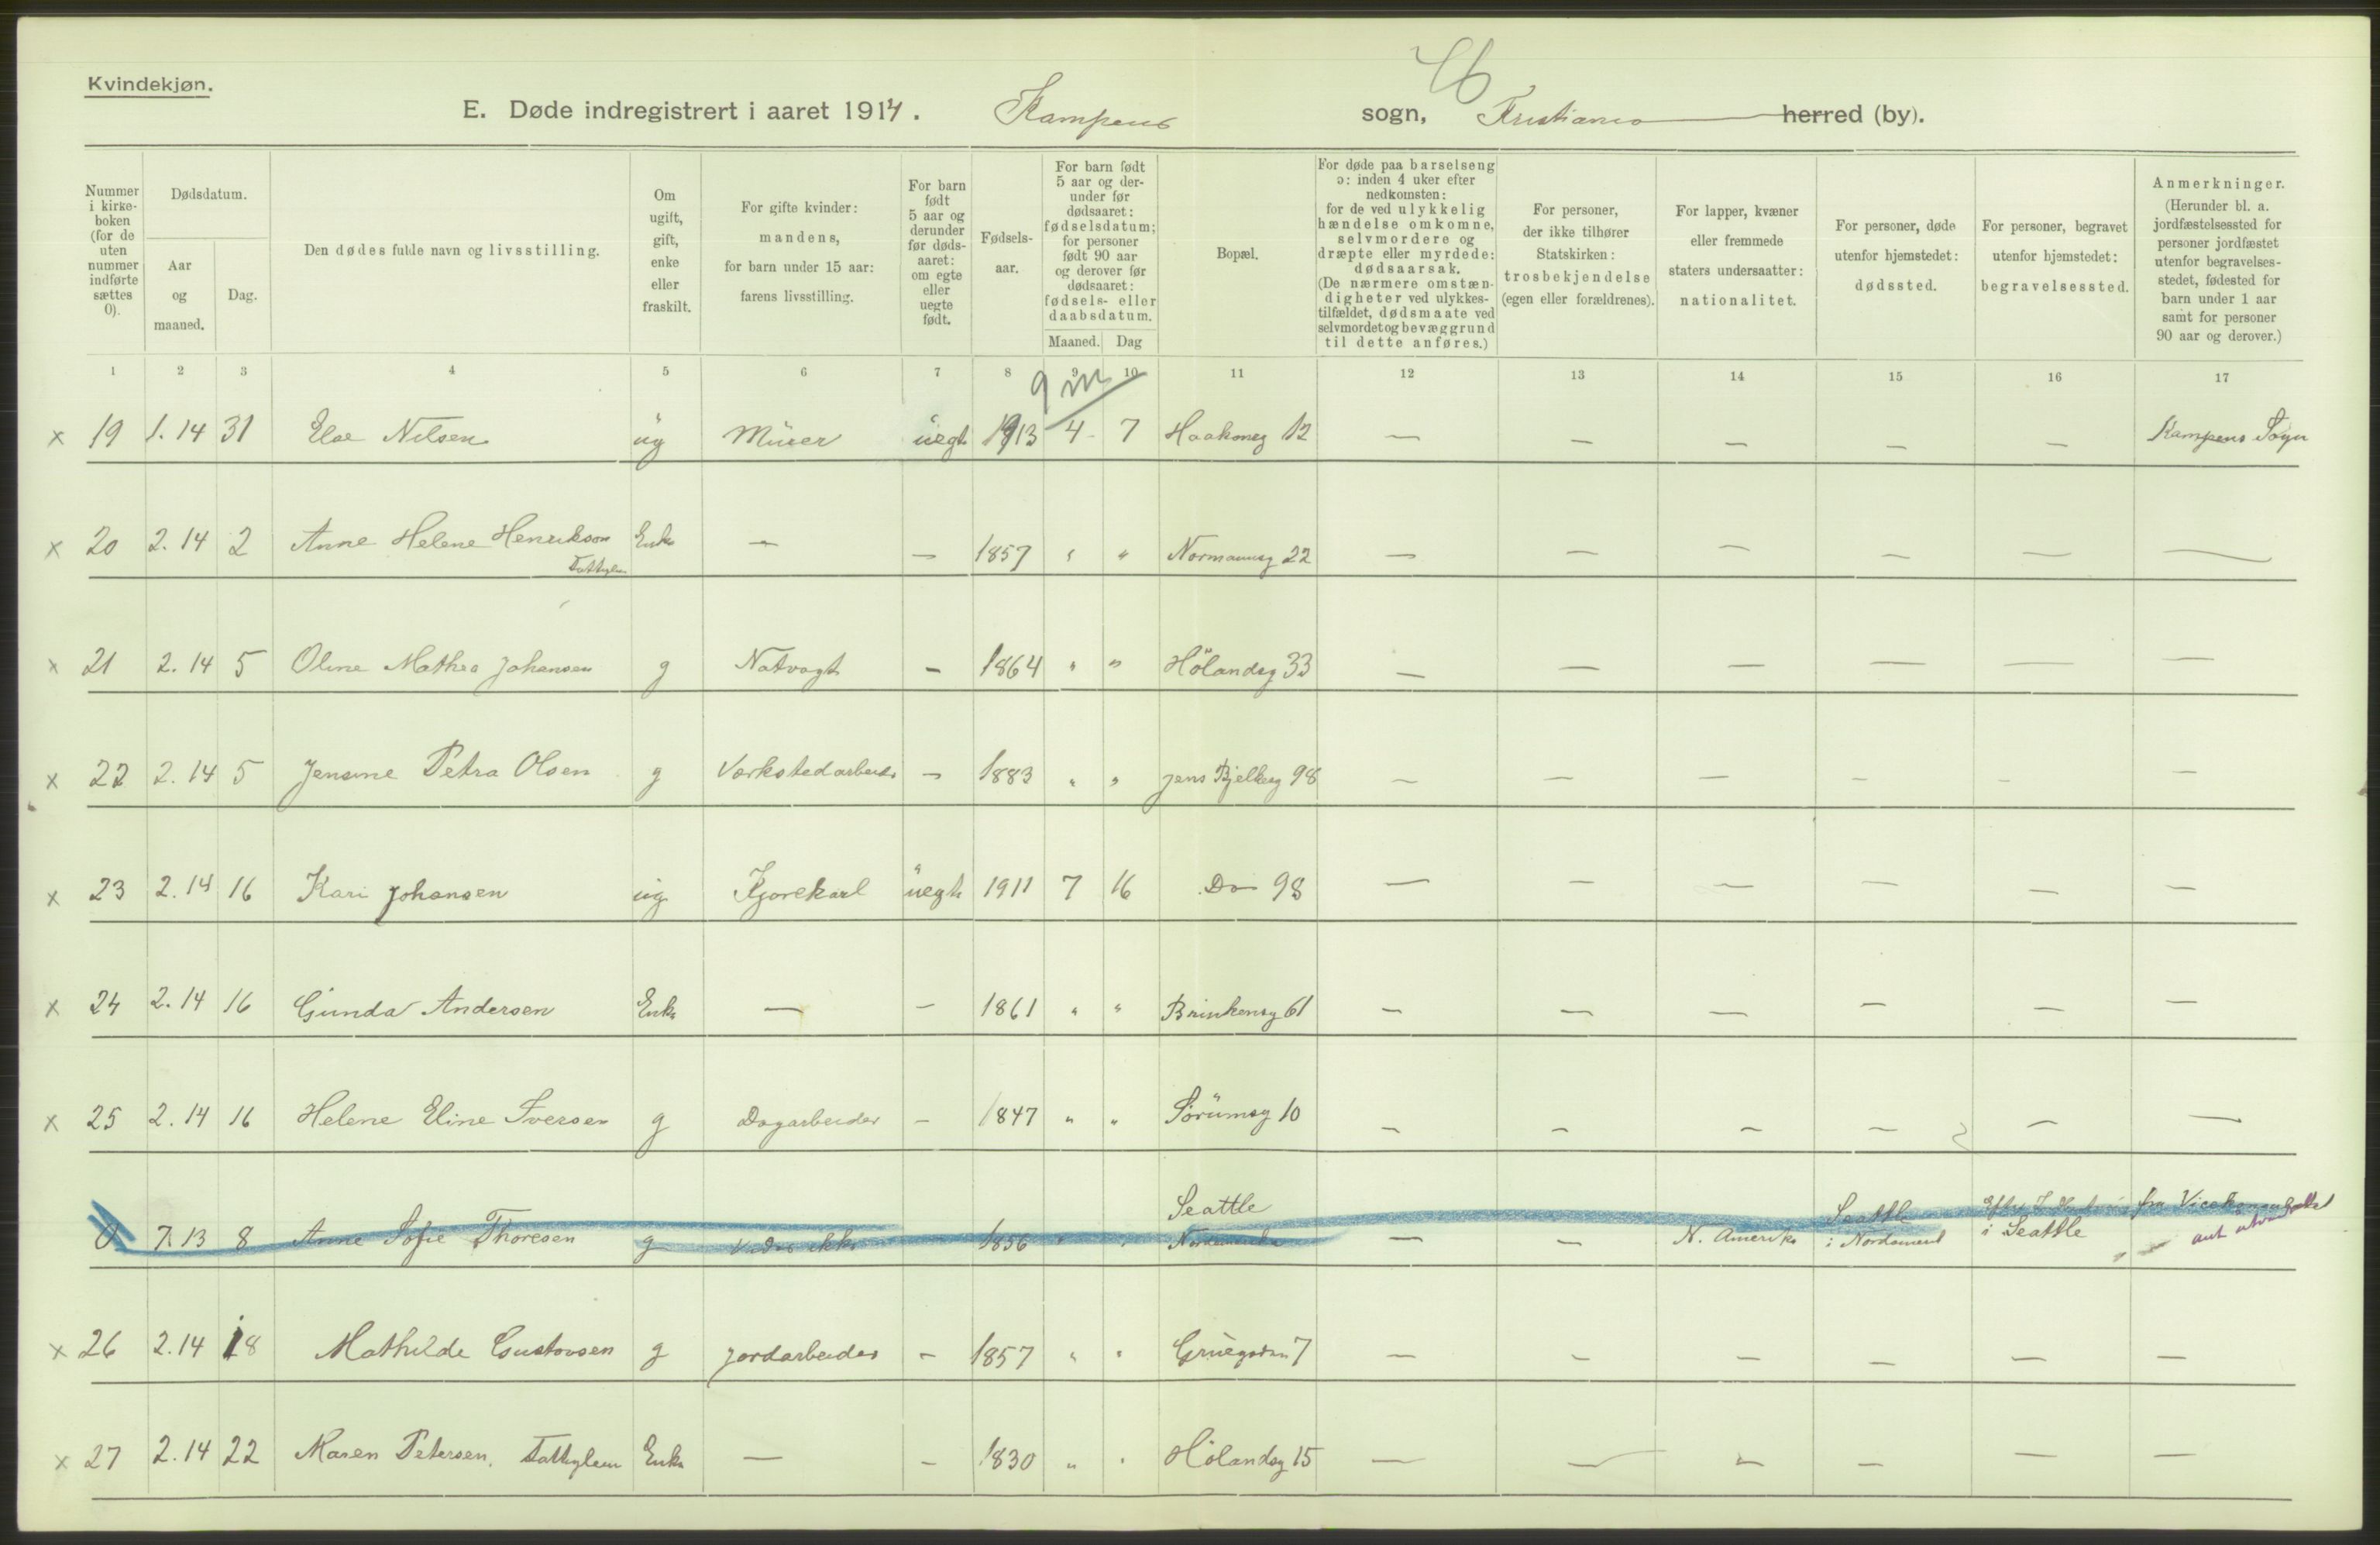 Kvindekjøn.
E. Døde indregistrert i aaret 1914. Kampens sogn, Kristiania herred (by).
Nummer i kirkeboken (for de uten nummer indførte sættes 0).
Dødsdatum.
Aar og maaned.
Dag.
Den dødes fulde navn og livsstilling.
Om ugift, gift, enke eller fraskilt.
For gifte kvinder: mandens, for barn under 15 aar: farens livsstilling.
For barn født 5 aar og derunder før dødsaaret: om egte eller uegte født.
Fødselsaar.
For barn født 5 aar og derunder før dødsaaret: fødselsdatum; for personer født 90 aar og derover før dødsaaret: fødsels- eller daabsdatum.
Maaned. Dag
Bopæl.
For døde paa barselseng ɔ: inden 4 uker efter nedkomsten: for de ved ulykkelig hændelse omkomne, selvmordere og dræpte eller myrdede: dødsaarsak. (De nærmere omstændigheter ved ulykkestilfældet, dødsmaate ved selvmordet og bevæggrund til dette anføres.)
For personer, der ikke tilhører Statskirken: trosbekjendelse (egen eller forældrenes).
For lapper, kvæner eller fremmede staters undersaatter: nationalitet.
For personer, døde utenfor hjemstedet: dødssted.
For personer, begravet utenfor hjemstedet: begravelsessted.
Anmerkninger. (Herunder bl. a. jordfæstelsessted for personer jordfæstet utenfor begravelsesstedet, fødested for barn under 1 aar samt for personer 90 aar og derover.)
1 2 3 4 5 6 7 8 9 10 11 12 13 14 15 16 17
9 m
x 19 1.14 31 Else Nilsen ug Murer uegt 1913 4 7 Haakonsg 12 — — — — — Kampens Sogn
x 20 2.14 2 Anne Helene Henriksen Fattiglem Enke — — 1857 " " Normannsg 22 — — — — — —
x 21 2.14 5 Oline Mathea Johansen g Natvagt – 1864 " " Hölandsg 33 — — — — — —
x 22 2.14 5 Jensine Petra Olsen g Værkstedarbeider – 1883 " " Jens Bjelkesg 98 — — — — — —
x 23 2.14 16 Kari Johansen ug Kjørekarl uegte 1911 7 16 Do 98 — — — — — —
x 24 2.14 16 Gunda Andersen Enke — – 1861 " " Brinkensg 61 — — — — — —
x 25 2.14 16 Helene Eline Iversen g Dagarbeider – 1847 " " Sörumsg 10 — — — — — —
0 7.13 8 Anne Sofie Thoresen g Vides ikke 1856 " " Seattle Nordamerika — — N. Amerika Seattle i Nordamerik i Seattle fra
x 26 2.14 18 Mathilde Gustavsen g Jordarbeider – 1857 " " Gruegaten 7 — — — — — —
x 27 2.14 22 Maren Petersen, Fattiglem Enke — – 1830 " " Hölandsg 15 — — — — — —